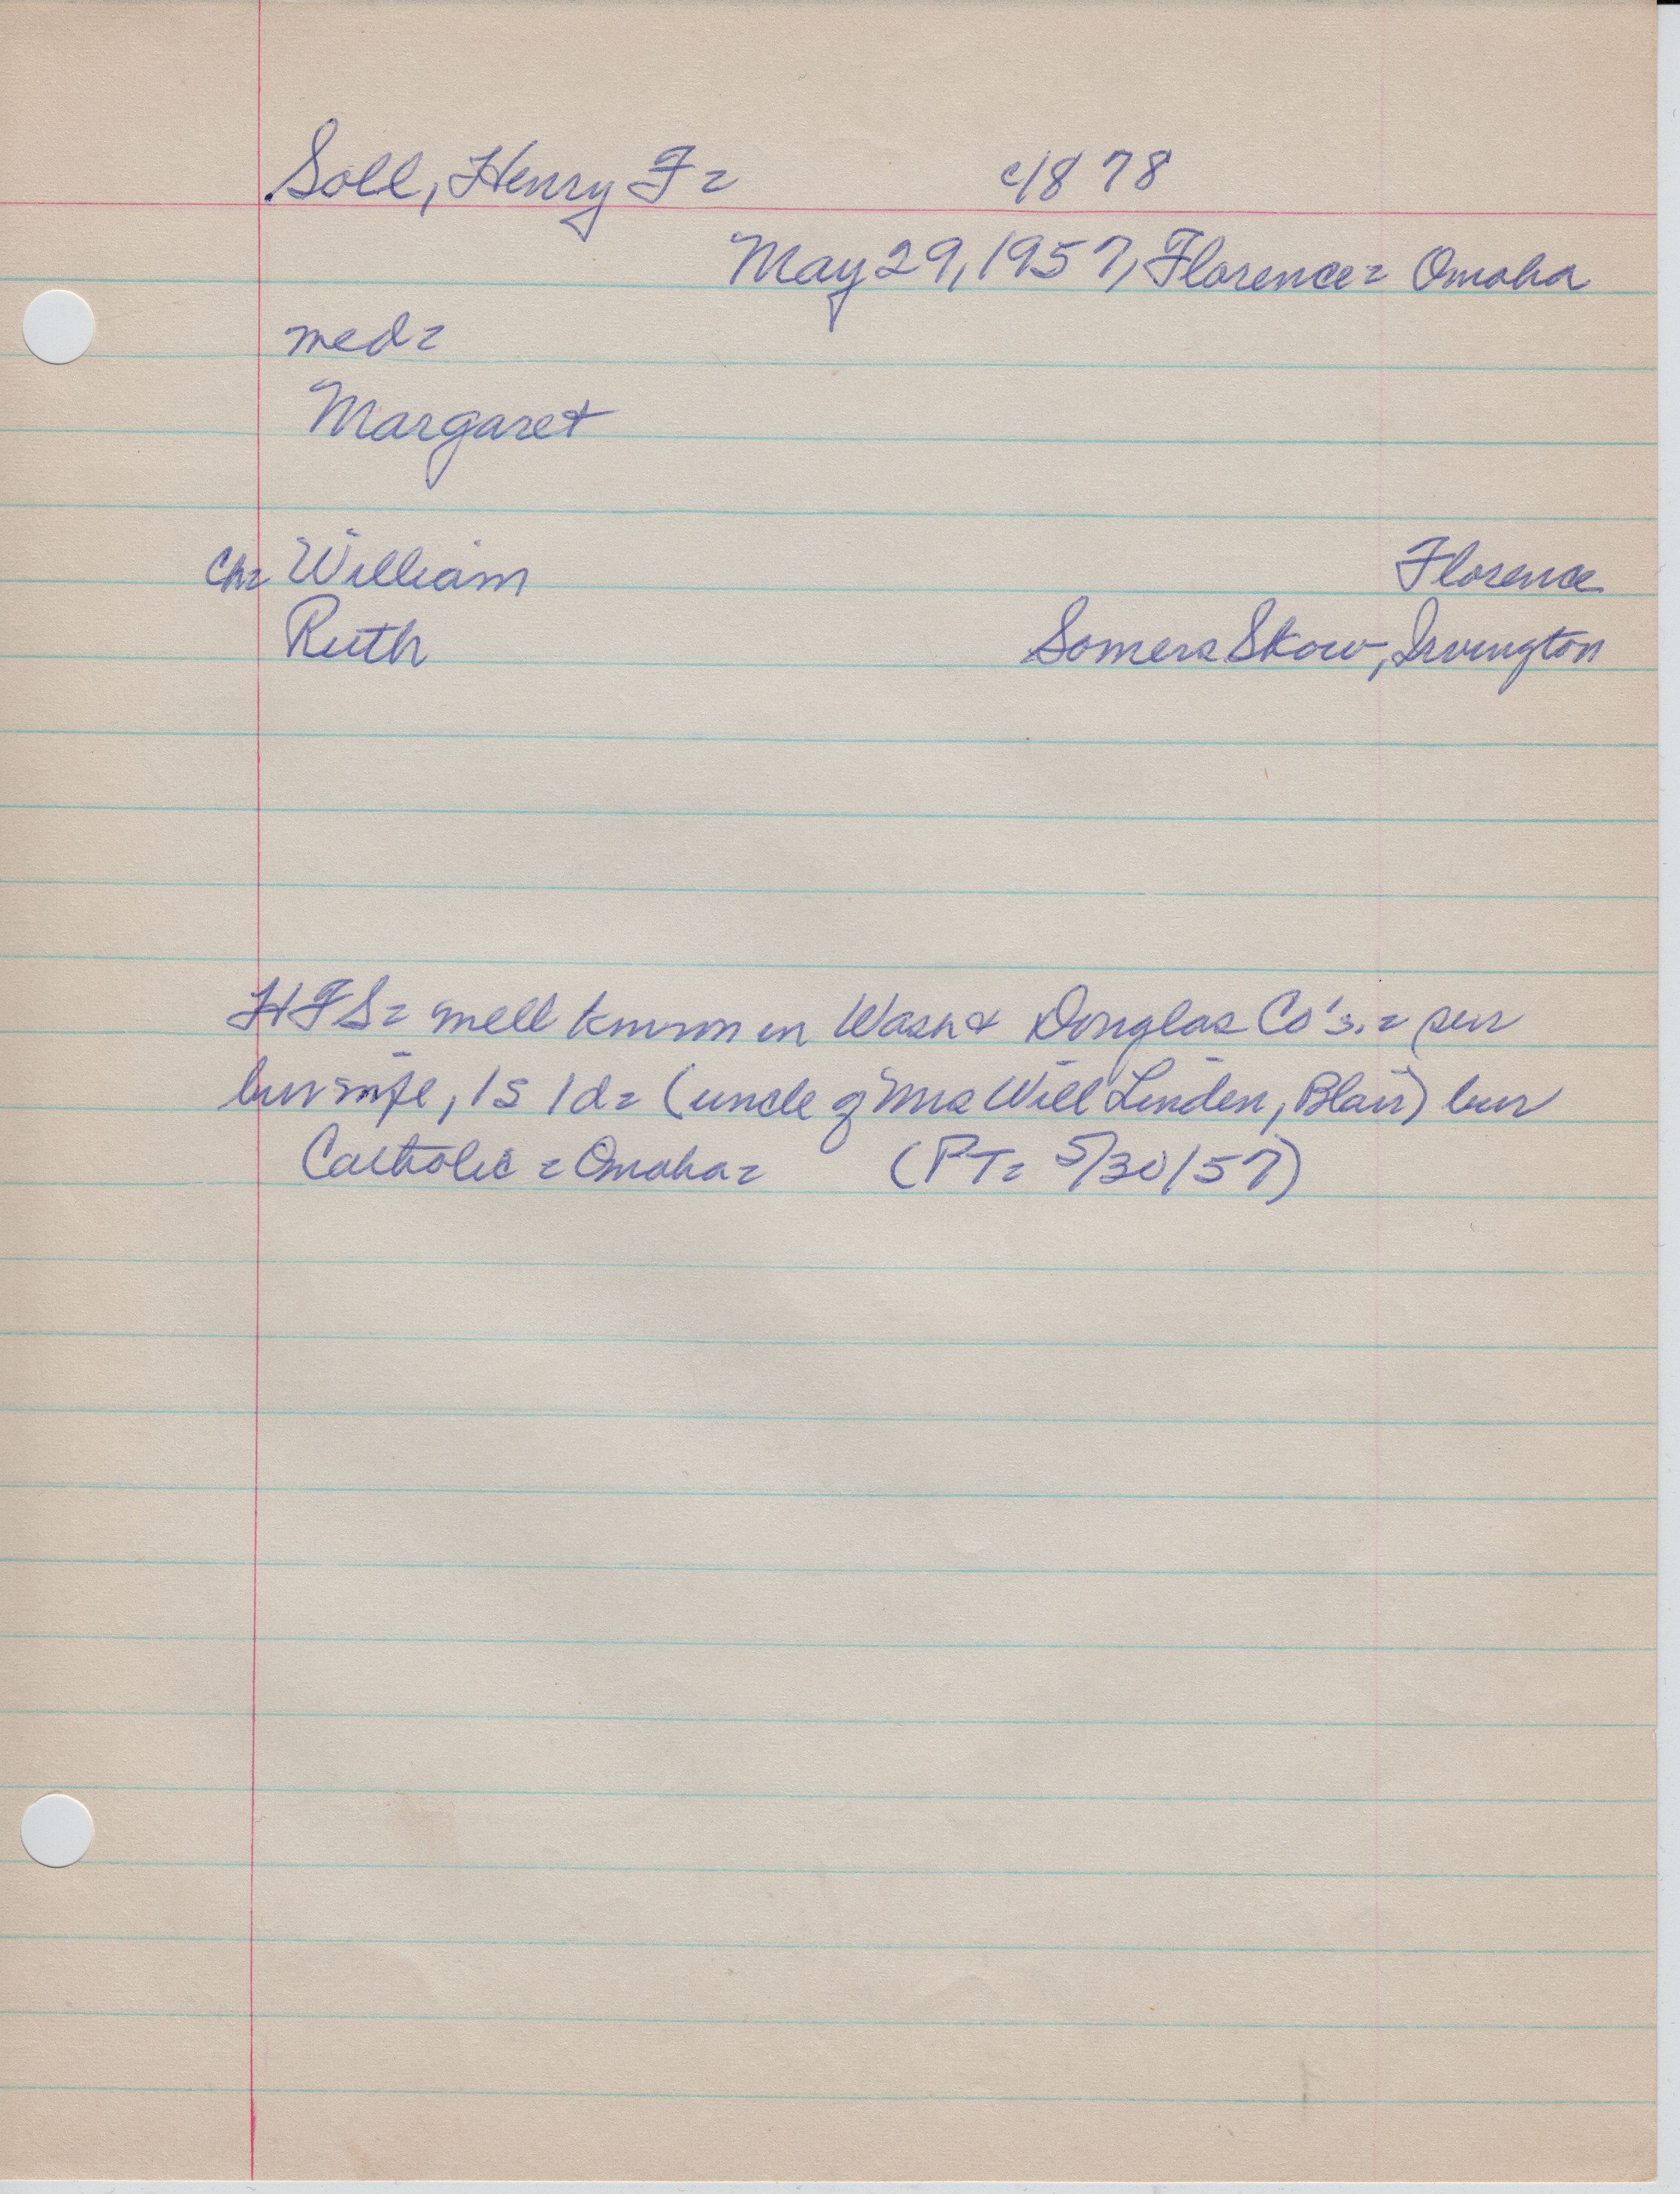 Soll, Henry F= c/878
May 29, 1957, Florence= Omaha
med=
Margaret
Ch= William Florence
Ruth Somers Skow, Irvington
HFS= well known in Wash & Douglas Co's.= sur
by wife, 1s 1d= (uncle of Mrs Will Linden, Blair) bur
Catholic = Omaha= (PT= 5/30/57)